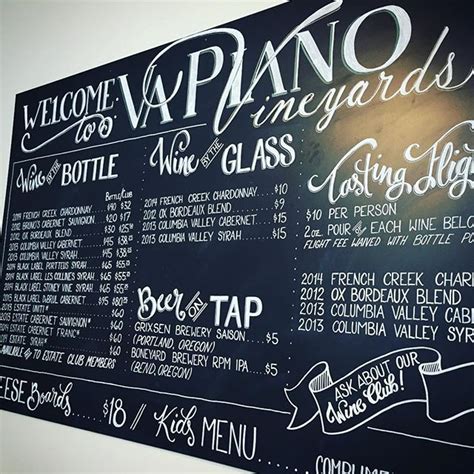 WELCOME to VA PIANO Vineyards
Wine BY THE BOTTLE
BOTTLE/CLUB
2014 FRENCH CREEK CHARDONNAY $40 $32
CABERNET SAUVIGNON $17
2012 OX BORDEAUX BLEND
2013 COLUMBIA VALLEY CABERNET
2013 COLUMBIA VALLEY SYRAH
2014 BLACK LABEL PORTTEUS SYRAH $45 $55
2014 BLACK LABEL LES COLLINES SYRAH $45 $55
BLACK LABEL STONEY VINE SYRAH $45
BLACK LABEL CABERNET $45
ESTATE $60
ESTATE CABERNET SAUVIGNON* $60
ESTATE CABERNET FRANC* $60
ESTATE SYRAH $60
AVAILABLE TO ESTATE CLUB MEMBERS
Wine BY THE GLASS
2014 FRENCH CREEK CHARDONNAY $10
2012 OX BORDEAUX BLEND $9
2013 COLUMBIA VALLEY CABERNET $15
2013 COLUMBIA VALLEY SYRAH $15
Beer ON TAP
GRIXSEN BREWERY SAISON $5
(PORTLAND, OREGON)
BONEYARD BREWERY RPM IPA $5
(BEND, OREGON)
Tasting
$10 PER PERSON
2 oz. POUR OF EACH WINE
FLIGHT FEE WAIVED WITH BOTTLE
2014 FRENCH CREEK
2012 OX BORDEAUX BLEND
2013 COLUMBIA VALLEY
2013 COLUMBIA VALLEY SYRAH
ASK ABOUT OUR
Wine Club!
Boards $18 // Kids MENU